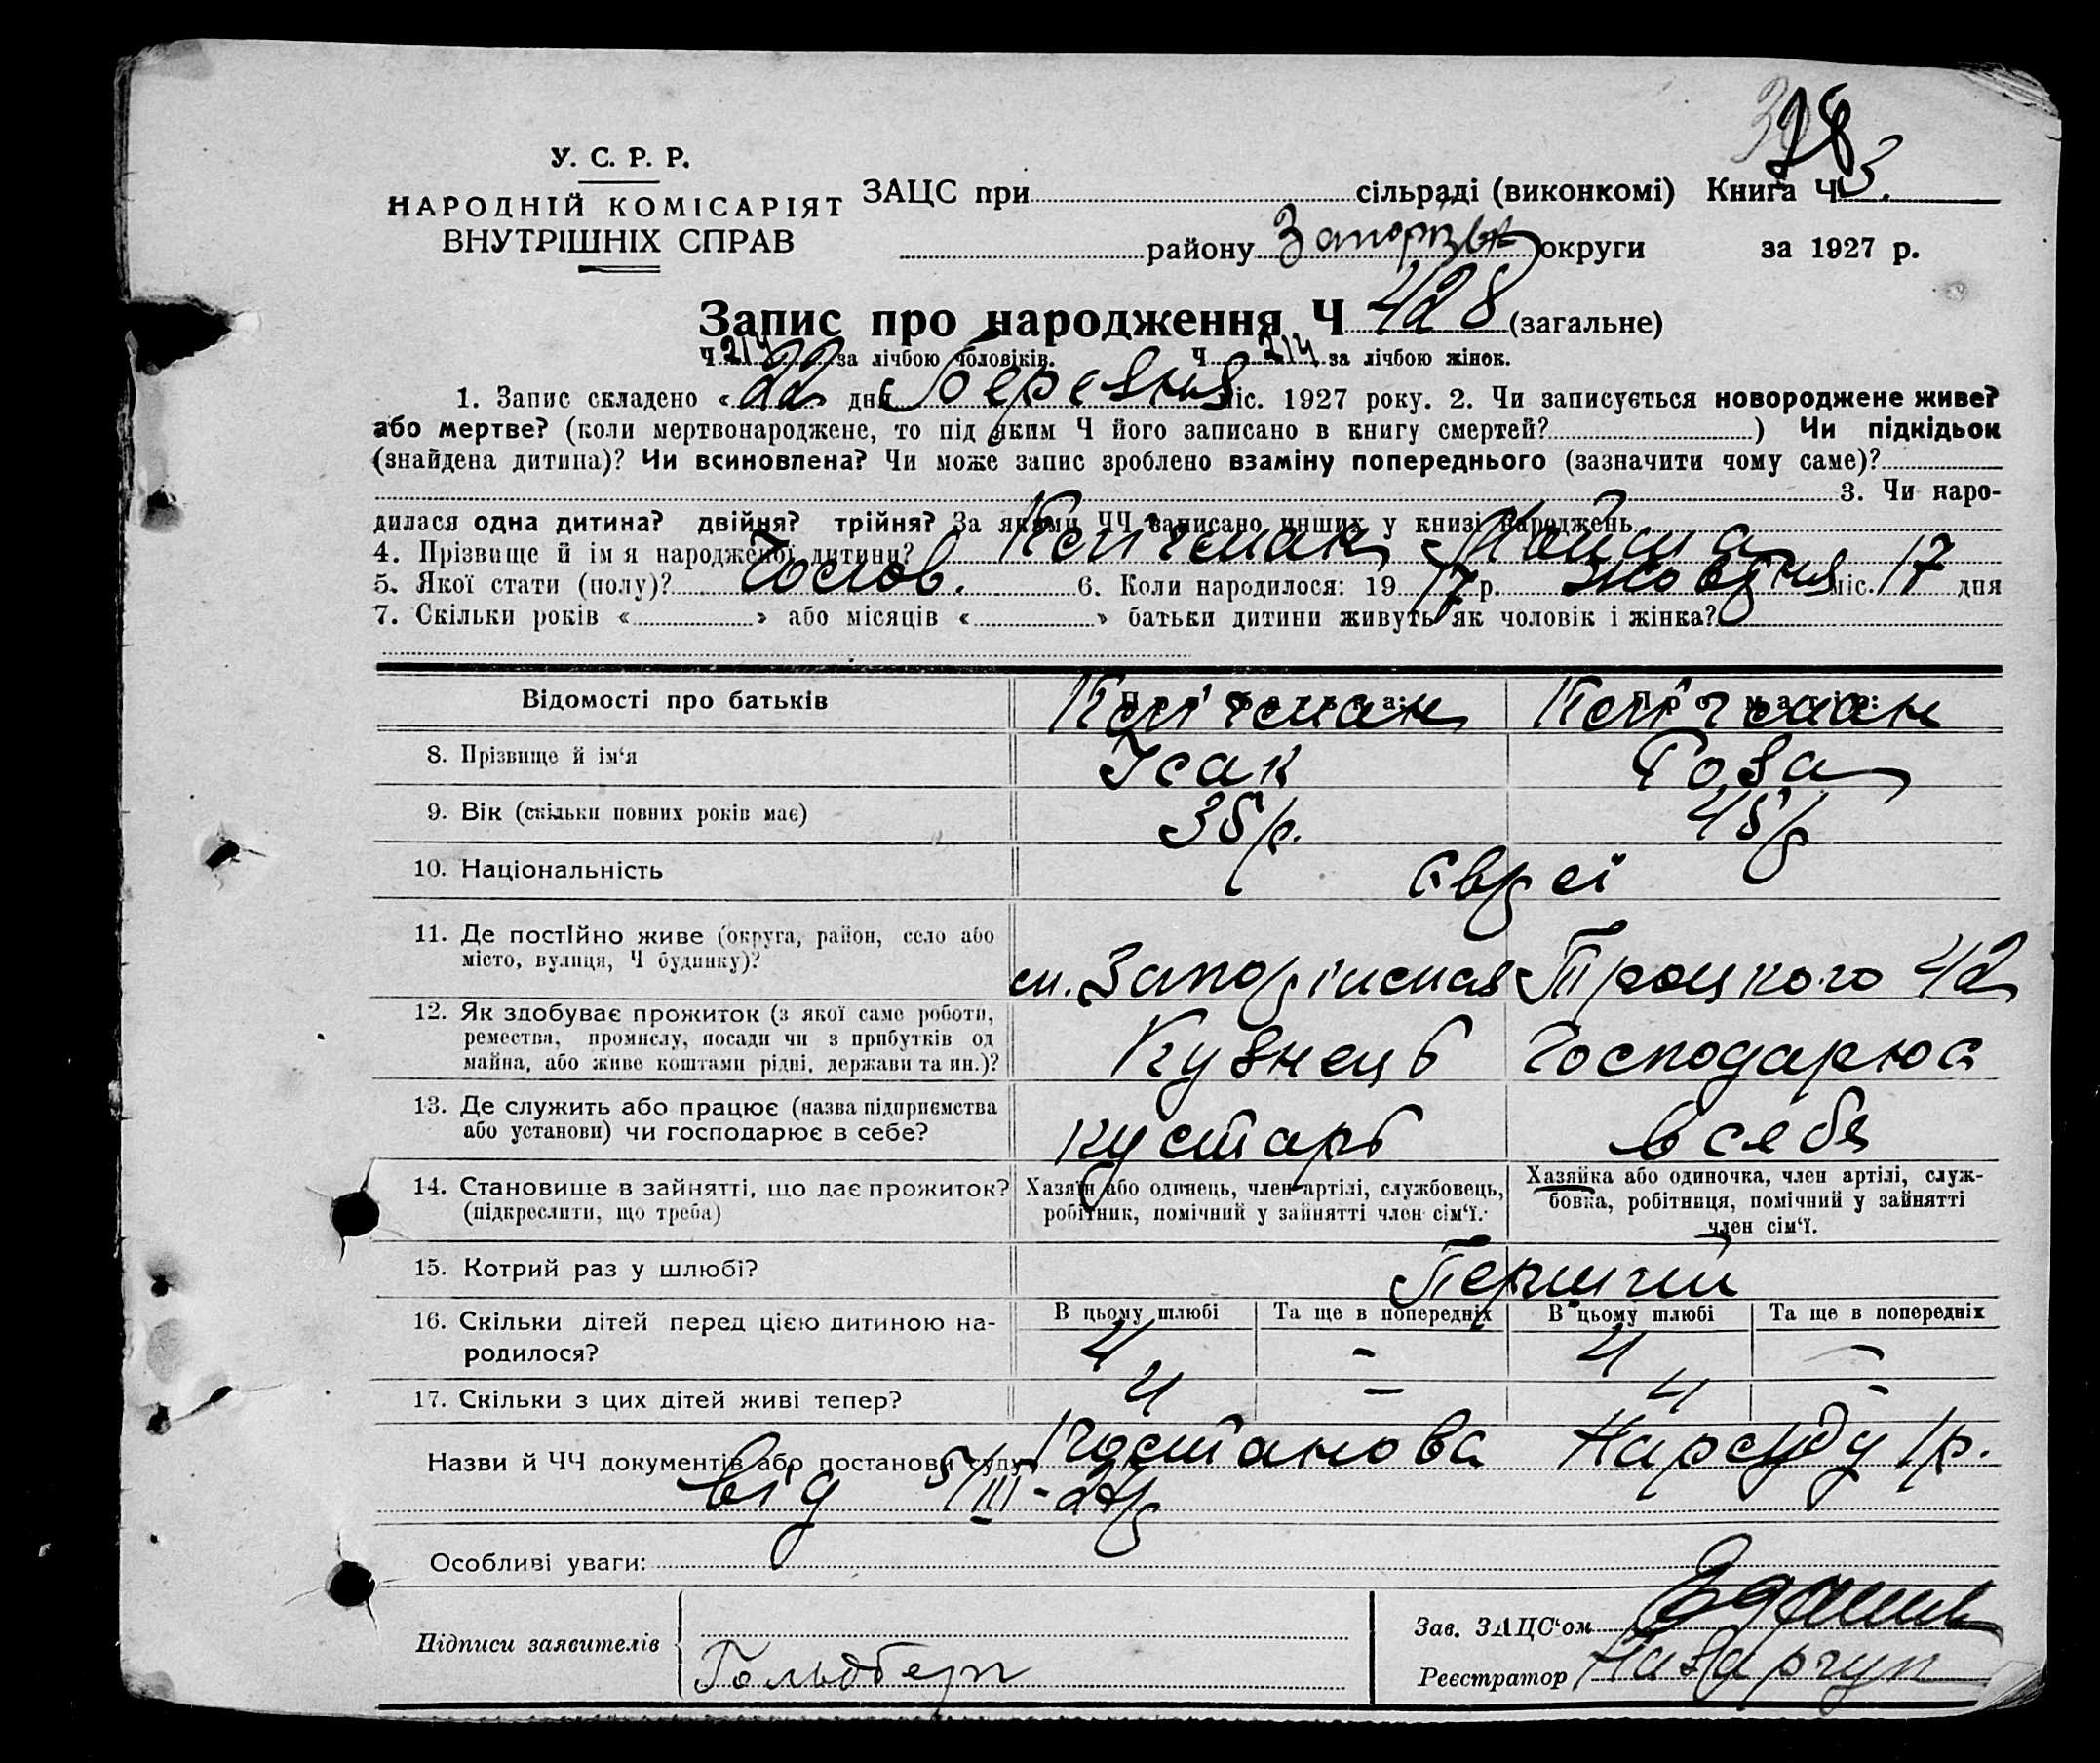 У. С. Р. Р.
НАРОДНІЙ КОМІСАРІЯТ
ВНУТРІШНІХ СПРАВ
ЗАЦС при сільраді (виконкомі) Книга Ч 3.
району округи за 1927 р.
Запис про народження Ч 428 (загальне)
Ч 214 за лічбою чоловіків. Ч 214 за лічбою жінок.
1. Запис складено « 22 » дня Березня міс. 1927 року. 2. Чи записується новороджене живе?
або мертве? (коли мертвонароджене, то під яким Ч його записано в книгу смертей? ) Чи підкідьок
(знайдена дитина)? Чи всиновлена? Чи може запис зроблено взаміну попереднього (зазначити чому саме)?
3. Чи наро-
дилася одна дитина? двійня? трійня? За якими ЧЧ записано инших у книзі народжень
4. Прізвище й ім я народженої дитини?
5. Якої стати (полу)? Чолов. 6. Коли народилося: 19 17 р. жовтня міс. 17 дня
7. Скільки років « » або місяців « » батьки дитини живуть як чоловік і жінка?
Відомості про батьків
8. Прізвище й ім‘я Ісак Роза
9. Вік (скільки повних років має) 38 р. 45 р
10. Національність євреї
11. Де постійно живе (округа, район, село або
місто, вулиця, Ч будинку)? Троцкого 42
12. Як здобуває прожиток (з якої саме роботи,
ремества, промислу, посади чи з прибутків од
майна, або живе коштами рідні, держави та ин.)? Кузнець Господарює
13. Де служить або працює (назва підприємства
або установи) чи господарює в себе? кустарь в себе
14. Становище в зайнятті, що дає прожиток?
(підкреслити, що треба)
Хазяїн або одинець, член артілі, службовець,
робітник, помічний у зайнятті член сім‘ї.
Хазяйка або одиночка, член артілі, служ-
бовка, робітниця, помічний у зайнятті
член сім‘ї.
15. Котрий раз у шлюбі? Перший
16. Скільки дітей перед цією дитиною на-
родилося?
В цьому шлюбі Та ще в попередніх В цьому шлюбі Та ще в попередніх
4 – 4 –
17. Скільки з цих дітей живі тепер? 4 – 4 –
Назви й ЧЧ документів або постанови суду Постанова Нарсуду 1 р.
від 5/III-27 р
Особливі уваги:
Підписи заявителів
Гольдберг
Зав. ЗАЦС‘ом
Реєстратор